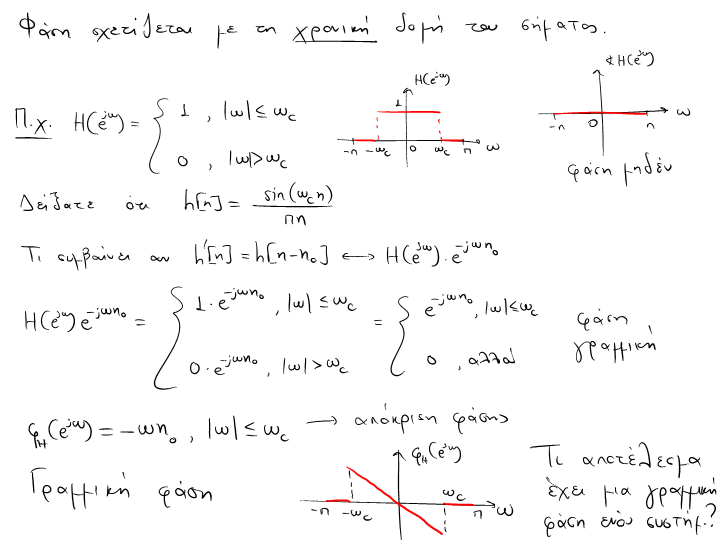 Φάση σχετίζεται με τη χρονική δομή του σήματος.
Π.χ. H(e^{jω}) = { 1 , |ω| ≤ ω_c
0 , |ω| > ω_c
H(e^{jω})
1
-π -ω_c 0 ω_c π ω
∢ H(e^{jω})
-π 0 π ω
φάση μηδέν
Δείξατε ότι h[n] = sin(ω_c n) / πn
Τι συμβαίνει αν h'[n] = h[n-n_0] ⟷ H(e^{jω}) · e^{-jωn_0}
H(e^{jω}) e^{-jωn_0} = { 1 · e^{-jωn_0} , |ω| ≤ ω_c = { e^{-jωn_0} , |ω| ≤ ω_c
0 · e^{-jωn_0} , |ω| > ω_c 0 , αλλού
φάση
γραμμική
φ_H(e^{jω}) = -ωn_0 , |ω| ≤ ω_c → απόκριση φάσης
Γραμμική φάση
φ_H(e^{jω})
-π -ω_c ω_c π ω
Τι αποτέλεσμα
έχει μια γραμμική
φάση ενός συστήμ.?